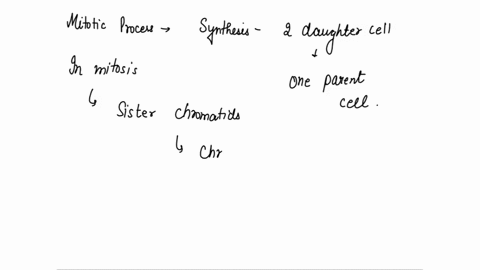 Mitotic Process → Synthesis - 2 daughter cell
↓
In mitosis
one parent cell.
↳ Sister chromatids
↳ Chr